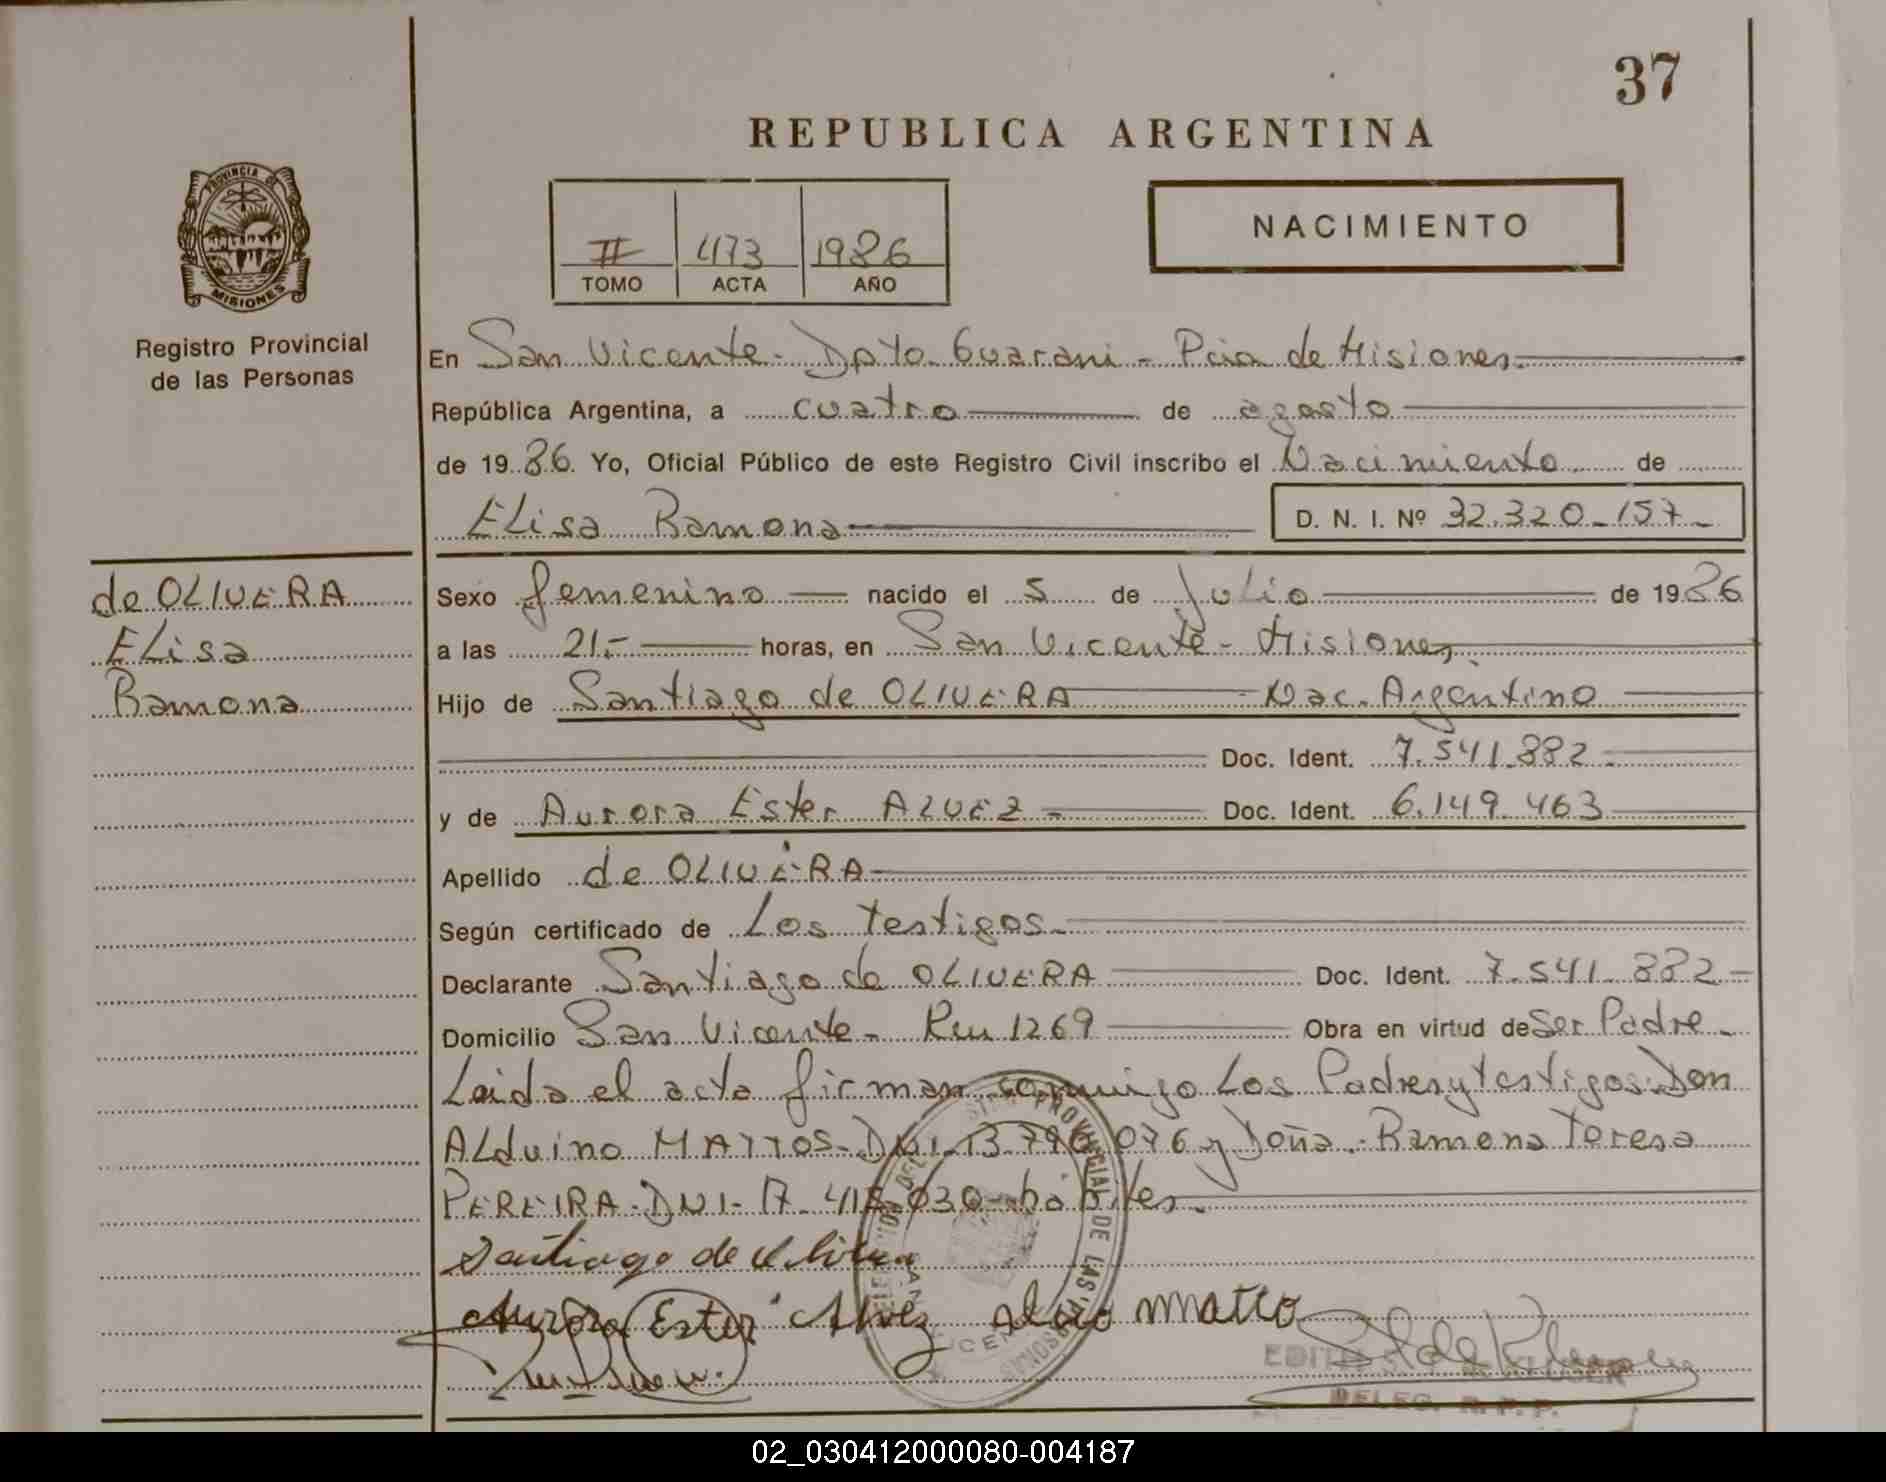 37
REPUBLICA ARGENTINA
PROVINCIA DE
MISIONES
Registro Provincial
de las Personas
II 473 1986
TOMO ACTA AÑO
NACIMIENTO
En San Vicente - Dpto Guarani - Pcia de Misiones.
República Argentina, a cuatro de agosto
de 1986. Yo, Oficial Público de este Registro Civil inscribo el Nacimiento de
Elisa Ramona D. N. I. Nº 32.320.157.-
de OLIVERA
Elisa
Ramona
Sexo femenino nacido el 5 de Julio de 1986
a las 21.- horas, en San Vicente - Misiones.
Hijo de Santiago de OLIVERA - Nac. Argentino
Doc. Ident. 7.541.882.-
y de Aurora Ester ALVEZ - Doc. Ident. 6.149.463
Apellido de OLIVERA
Según certificado de Los testigos.-
Declarante Santiago de OLIVERA Doc. Ident. 7.541.882-
Domicilio San Vicente - Ru 1269 Obra en virtud de Ser Padre.-
Leida el acta firman conmigo Los Padres y testigos: Don
Alduino MATTOS - DNI - 13.790.076 y Doña. Ramona Teresa
PEREIRA - DNI - 17.412.030 - hábiles.
Santiago de Olivera
Aurora Ester Alvez Alduino Matto
EDITH S. KLUSER
DELEG. R.P.P.
02_030412000080-004187